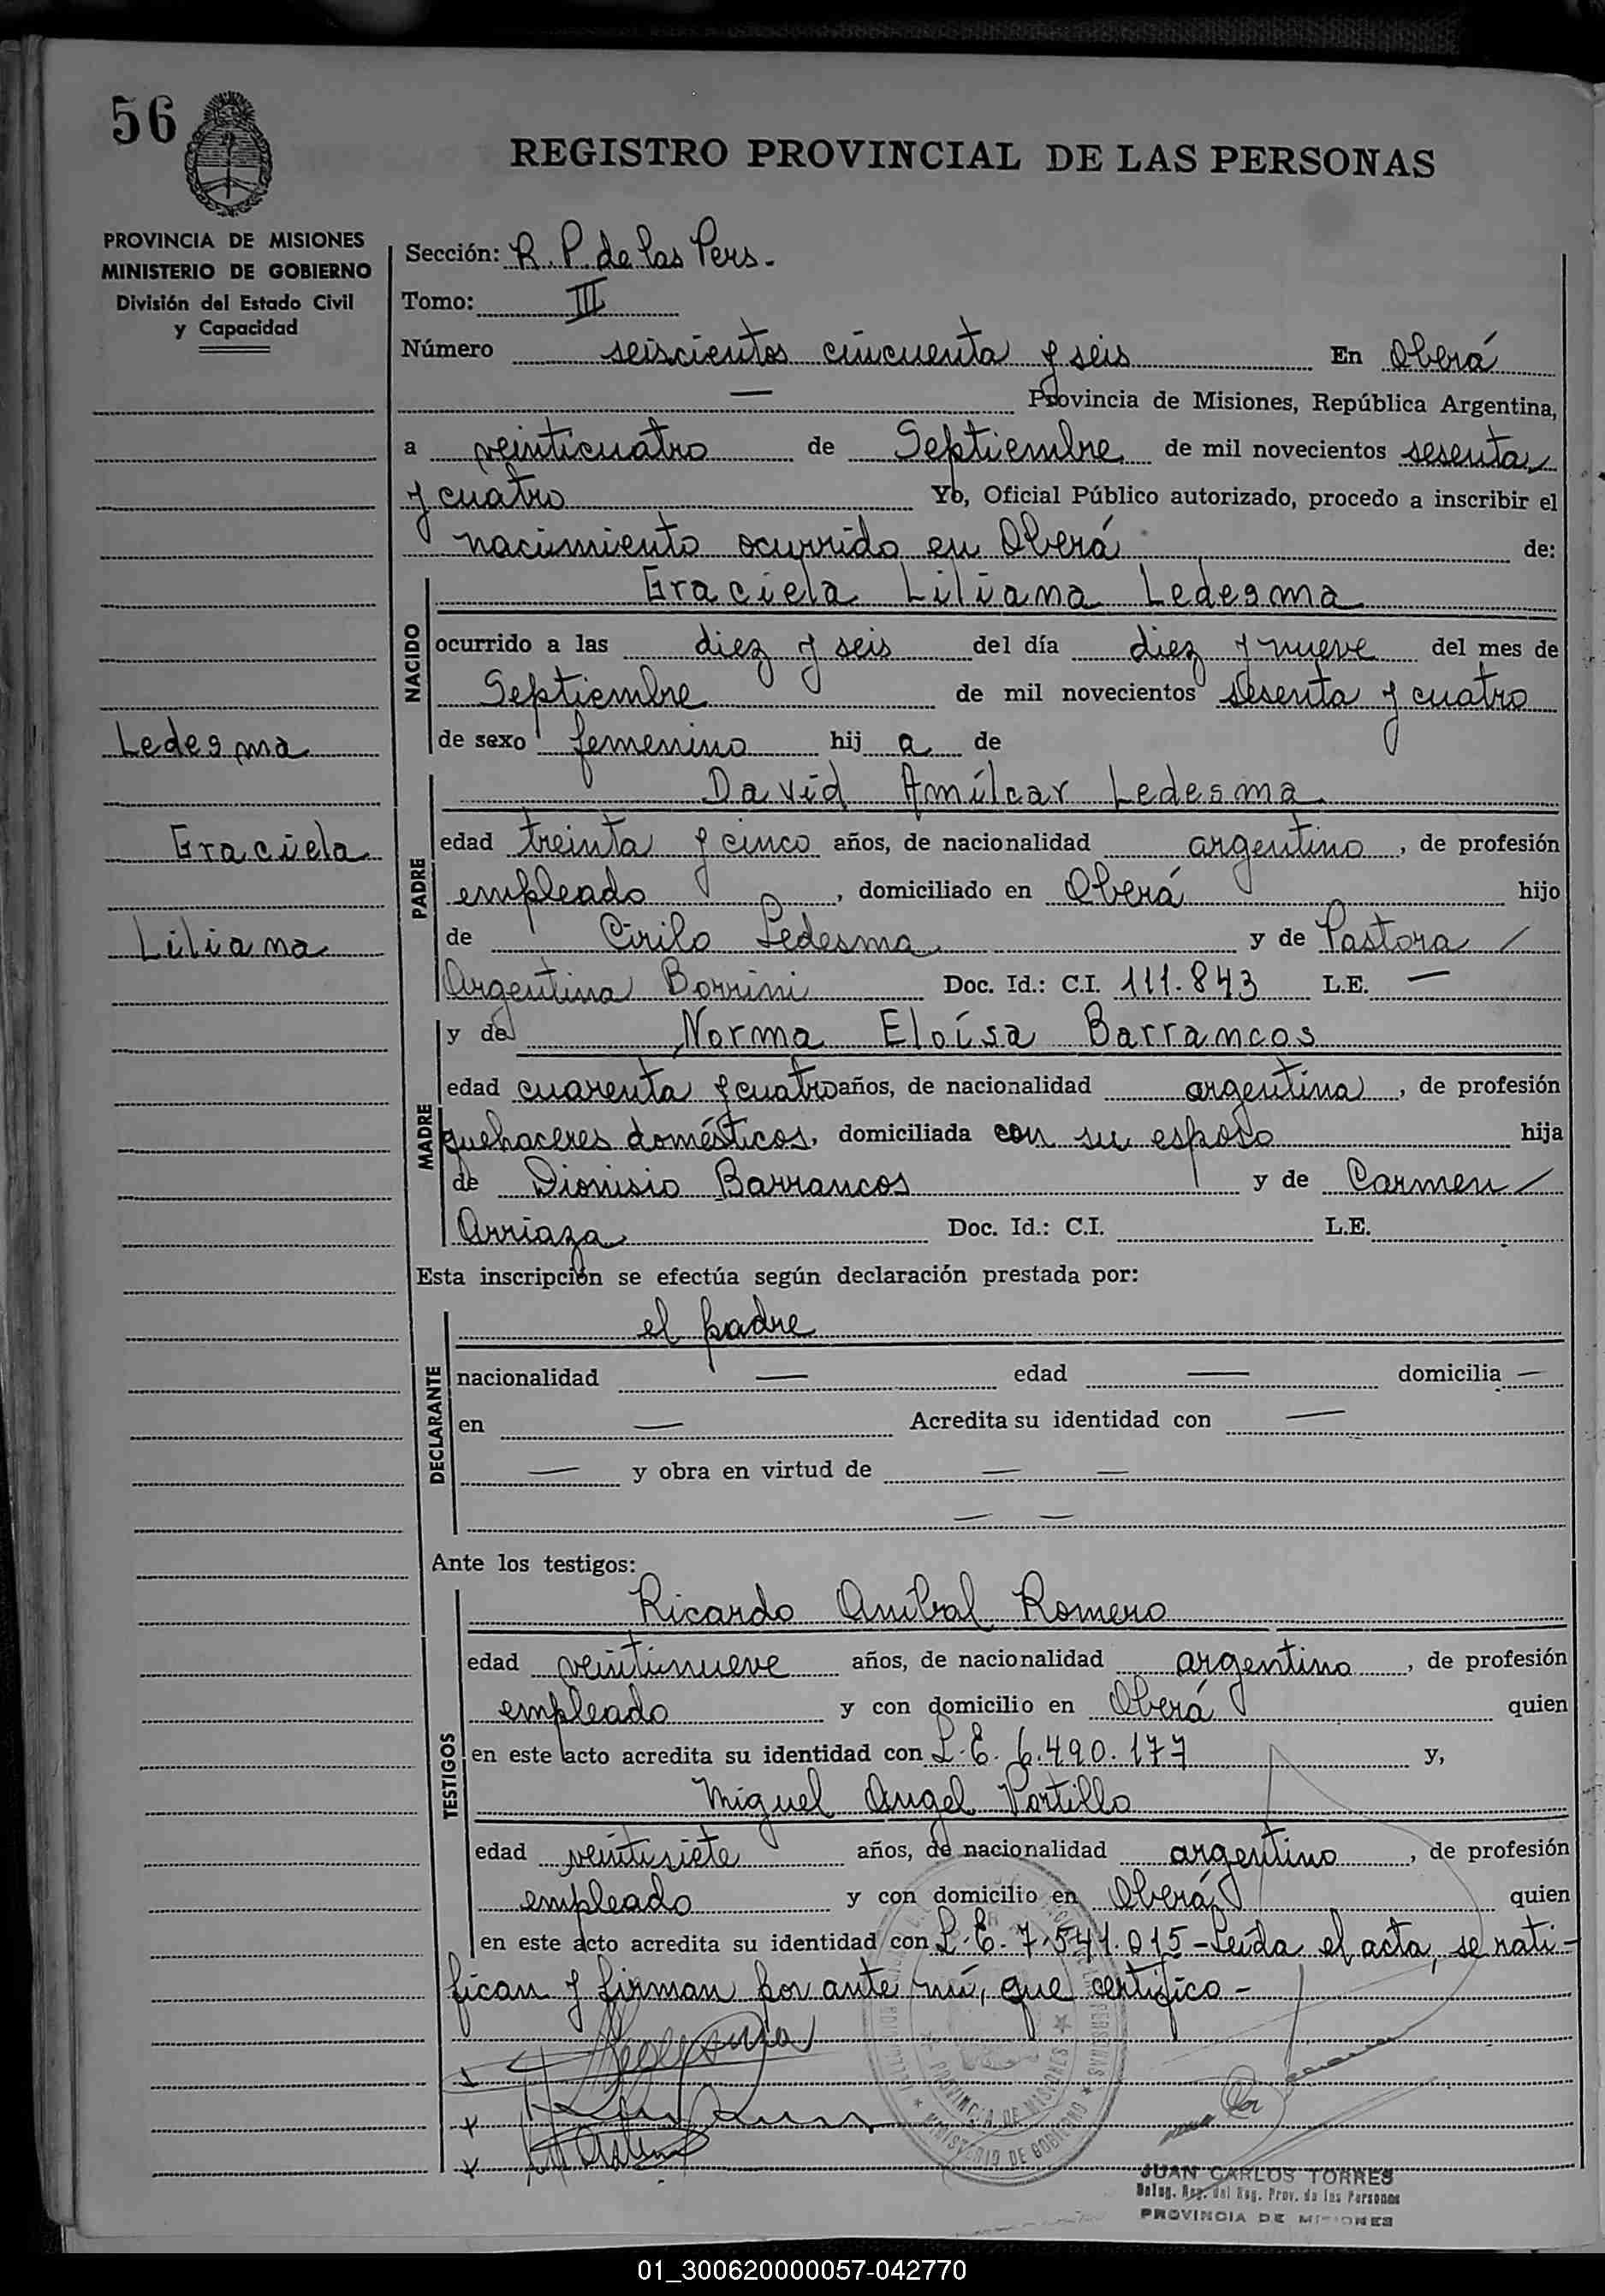 56
REGISTRO PROVINCIAL DE LAS PERSONAS
PROVINCIA DE MISIONES
MINISTERIO DE GOBIERNO
División del Estado Civil
y Capacidad
Sección: R. P. de las Pers.
Tomo: III
Número seiscientos cincuenta y seis En Oberá
— Provincia de Misiones, República Argentina,
a veinticuatro de Septiembre de mil novecientos sesenta
y cuatro Yo, Oficial Público autorizado, procedo a inscribir el
nacimiento ocurrido en Oberá de:
NACIDO
Graciela Liliana Ledesma
ocurrido a las diez y seis del día diez y nueve del mes de
Septiembre de mil novecientos sesenta y cuatro
de sexo femenino hij a de
Ledesma
Graciela
Liliana
PADRE
David Amílcar Ledesma
edad treinta y cinco años, de nacionalidad argentino, de profesión
empleado, domiciliado en Oberá hijo
de Cirilo Ledesma y de Pastora /
Argentina Borrini Doc. Id.: C.I. 111.843 L.E. —
MADRE
y de Norma Eloísa Barrancos
edad cuarenta y cuatro años, de nacionalidad argentina, de profesión
quehaceres domésticos, domiciliada con su esposo hija
de Dionisio Barrancos y de Carmen /
Arriaza Doc. Id.: C.I. L.E.
Esta inscripción se efectúa según declaración prestada por:
DECLARANTE
el padre
nacionalidad — edad — domicilia —
en — Acredita su identidad con —
— y obra en virtud de — —
— —
Ante los testigos:
TESTIGOS
Ricardo Aníbal Romero
edad veintinueve años, de nacionalidad argentino, de profesión
empleado y con domicilio en Oberá quien
en este acto acredita su identidad con L.E. 6.490.177 y,
Miguel Angel Portillo
edad veintisiete años, de nacionalidad argentino, de profesión
empleado y con domicilio en Oberá quien
en este acto acredita su identidad con L.E. 7.541.015 - Leída el acta, se rati-
fican y firman por ante mí, que certifico -
PROVINCIA DE MISIONES
MINISTERIO DE GOBIERNO
JUAN CARLOS TORRES
Deleg. Reg. del Reg. Prov. de las Personas
PROVINCIA DE MISIONES
01_300620000057-042770